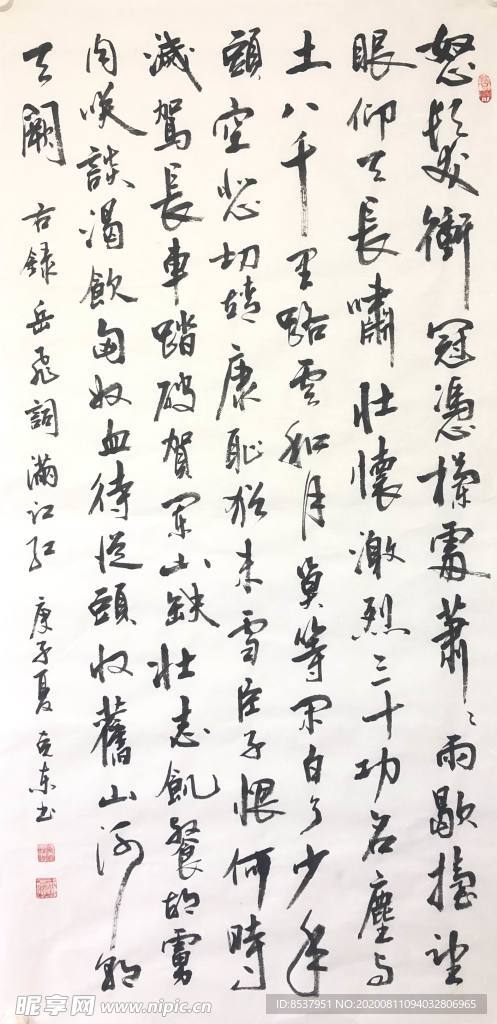 怒髮衝冠憑欄處蕭〻雨歇擡望
眼仰天長嘯壯懷激烈三十功名塵与
土八千里路雲和月莫等闲白了少年
頭空悲切靖康恥猶未雪臣子恨何時
滅駕長車踏破賀蘭山缺壯志飢餐胡虜
肉笑談渴飲匈奴血待從頭收舊山河朝
天闕
右錄岳飛詞滿江紅
庚子夏克東书
昵享网 www.nipic.cn
ID:8537951 NO:20200811094032806965